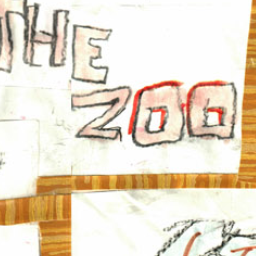 THE
ZOO